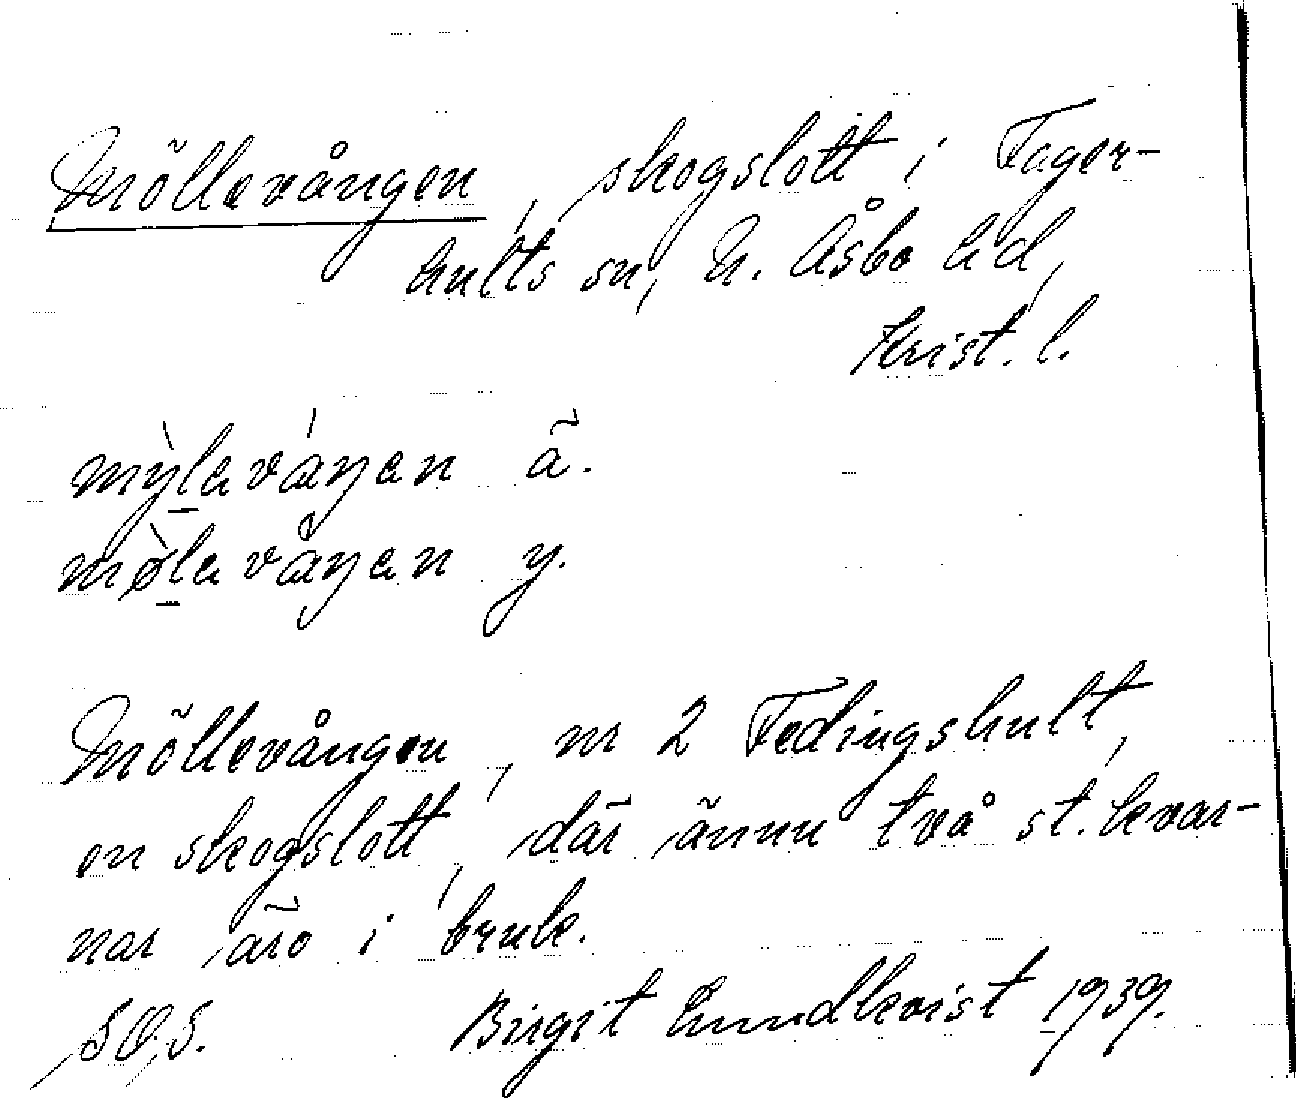 Möllevången, skogslott i Fager-
hults sn, N. Åsbo hd,
Krist. l.
mỳleváŋen ä.
mø̀levåŋen y.
Möllevången, nr 2 Fedingshult,
en skogslott, där ännu två st. kvar-
nar äro i bruk.
Birgit Lundkvist 1939.